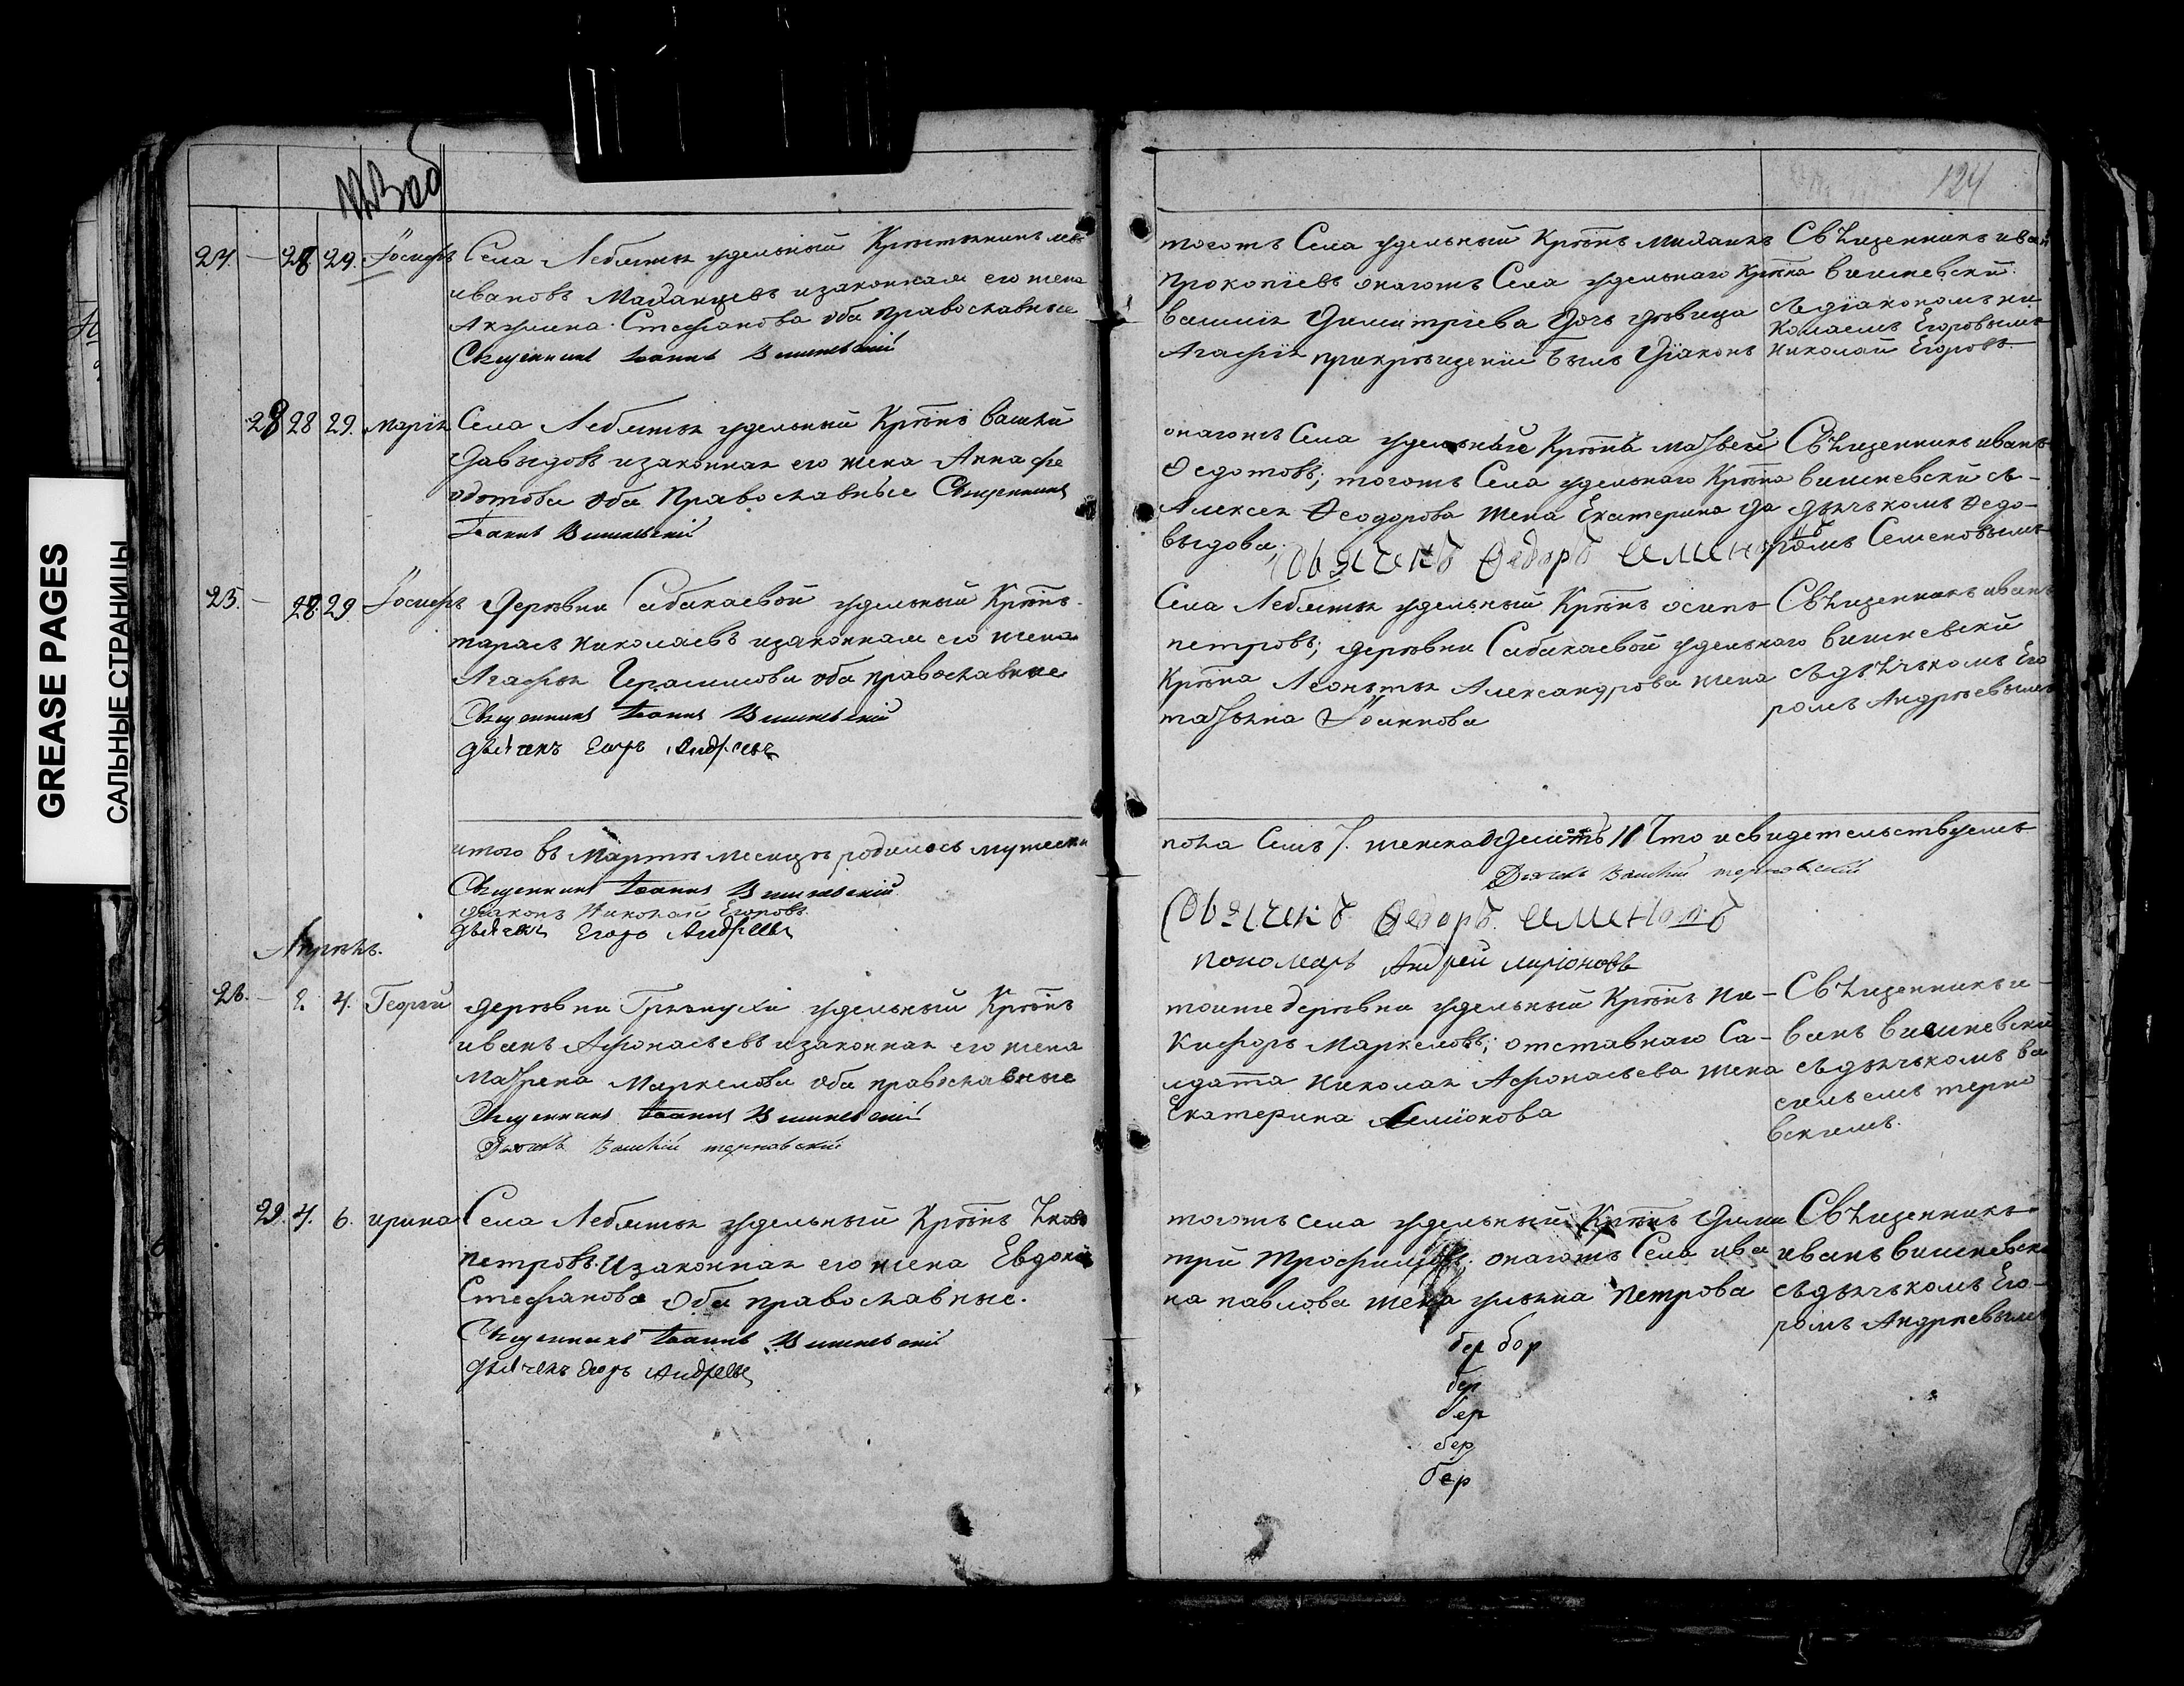 GREASE PAGES
САЛЬНЫЕ СТРАНИЦЫ
124
24. — 28 29. Іосифъ Села Лебяжья удельный Крестьянинъ
ивановъ Маланцевъ изаконная его жена
Акулина Стефанова оба православные
Священникъ Іоаннъ Вишневскій
тогожъ Села удельный Крѣтнъ
Прокопіевъ онагожъ Села удельнаго Крѣтна
василія Димитріева дочь девица
Агафія прикрѣщеніи былъ Діаконъ
Священникъ иванъ
вишневски
съдіакономъ ни
колаемъ Егоровымъ
николай Егоровъ
28 28 29. Марія Села Лебяжья удельный Крѣтнъ василій
Давыдовъ изаконная его жена Анна фе
дотова оба Православные Священникъ
Іоаннъ Вишневскій
онагожъ Села удельнаго Крѣтна матвей
Ѳедотовъ; тогожъ Села удельнаго Крѣтна
Алексея Ѳеодорова жена Екатерина Да
выдова.
дьячекъ Ѳедоръ семеновъ
Священникъ иванъ
вишневский съ-
дьячькомъ Ѳедо-
ромъ Семеновымъ
25. — 28. 29 Іосифъ Деревни Сабакаевой удельный Крѣтнъ
тарасъ николаевъ изаконная его жена
Агафья Герасимова оба православные
Священникъ Іоаннъ Вишневскій
дьячекъ Егоръ Андреевъ
Села Лебяжья удельный Крѣтнъ осипъ
петровъ; деревни Сабакаевой удельнаго
Крѣтна Леонтья Александрова жена
татьяна
Священникъ иванъ
вишневский
съдьячькомъ Его
ромъ Андреевымъ
итого въ Мартѣ месяцѣ родилось мужеска
Священникъ Іоаннъ Вишневскій
діаконъ Николай Егоровъ
дьячекъ Егоръ Андреевъ
пола Семь 7. женска 11 Что исвидетельствуемъ
Дьячекъ Василій терновскій
дьячекъ Ѳедоръ семеновъ
пономарь Андрей ларіоновъ
Апрѣль.
26. — 2. 4. Георгій деревни удельный Крѣтнъ
иванъ Афонасьевъ изаконная его жена
матрена Маркелова оба православные
Священникъ Іоаннъ Вишневскій
Дьячекъ Василій терновский
тоиже деревни удельный Крѣтнъ Ни-
кифоръ Маркеловъ; отставнаго Са-
лдата николая Афонасьева жена
Екатерина
Священникъ и-
ванъ вишневский
съдьячькомъ ва
сильемъ терно
вскимъ.
29. 4. 6. ирина Села Лебяжья удельный Крѣтнъ
петровъ. изаконная его жена Евдокія
Стефанова оба православные.
Священникъ Іоаннъ Вишневскій
дьячекъ Егоръ Андреевъ
тогожъ села удельный Крѣтнъ Дими
трій трофимовъ; онагожъ Села ива
на павлова жена ульяна Петрова
Священникъ
иванъ вишневски
съдьячькомъ Его-
ромъ Андреевымъ
бер бор
бер
бер
бер
бер